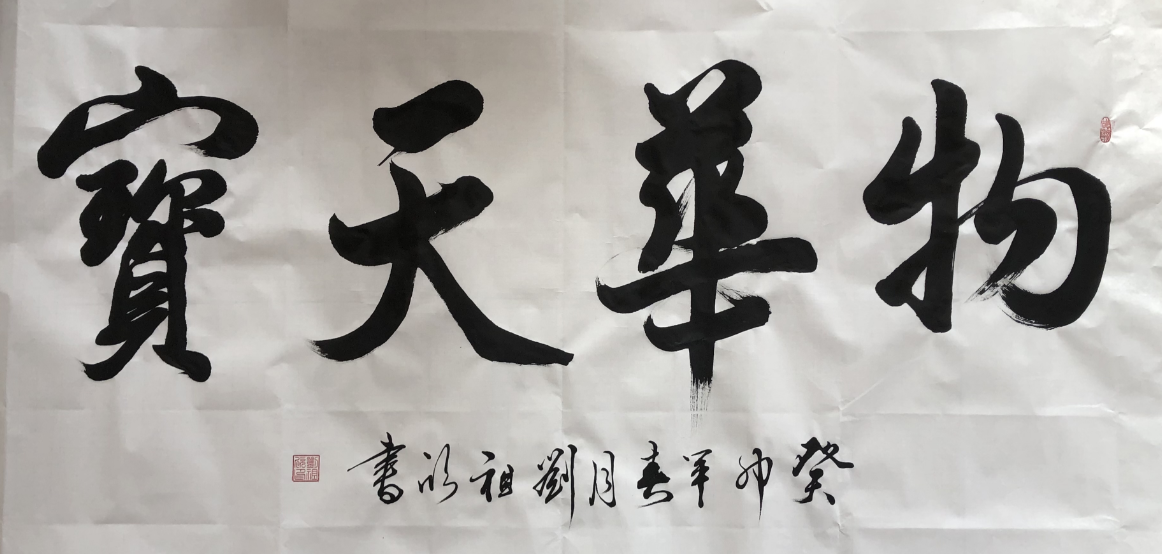 物華天寶
癸卯年春月劉祖欣書